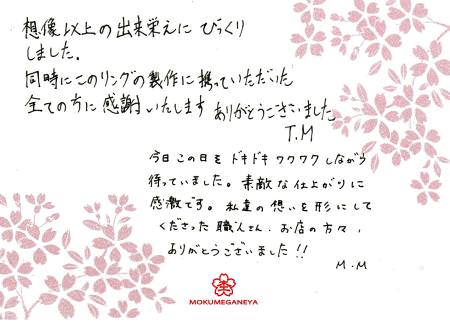 想像以上の出来栄えに びっくり
しました.
同時にこのリングの製作に携っていただいた
全ての方に感謝いたします ありがとうございました
T.M
今日この日を ドキドキ ワクワク しながら
待っていました。素敵な仕上がりに
感激です。私達の想いを形にして
くださった職人さん、お店の方々、
ありがとうございました!!
M.M
MOKUMEGANEYA